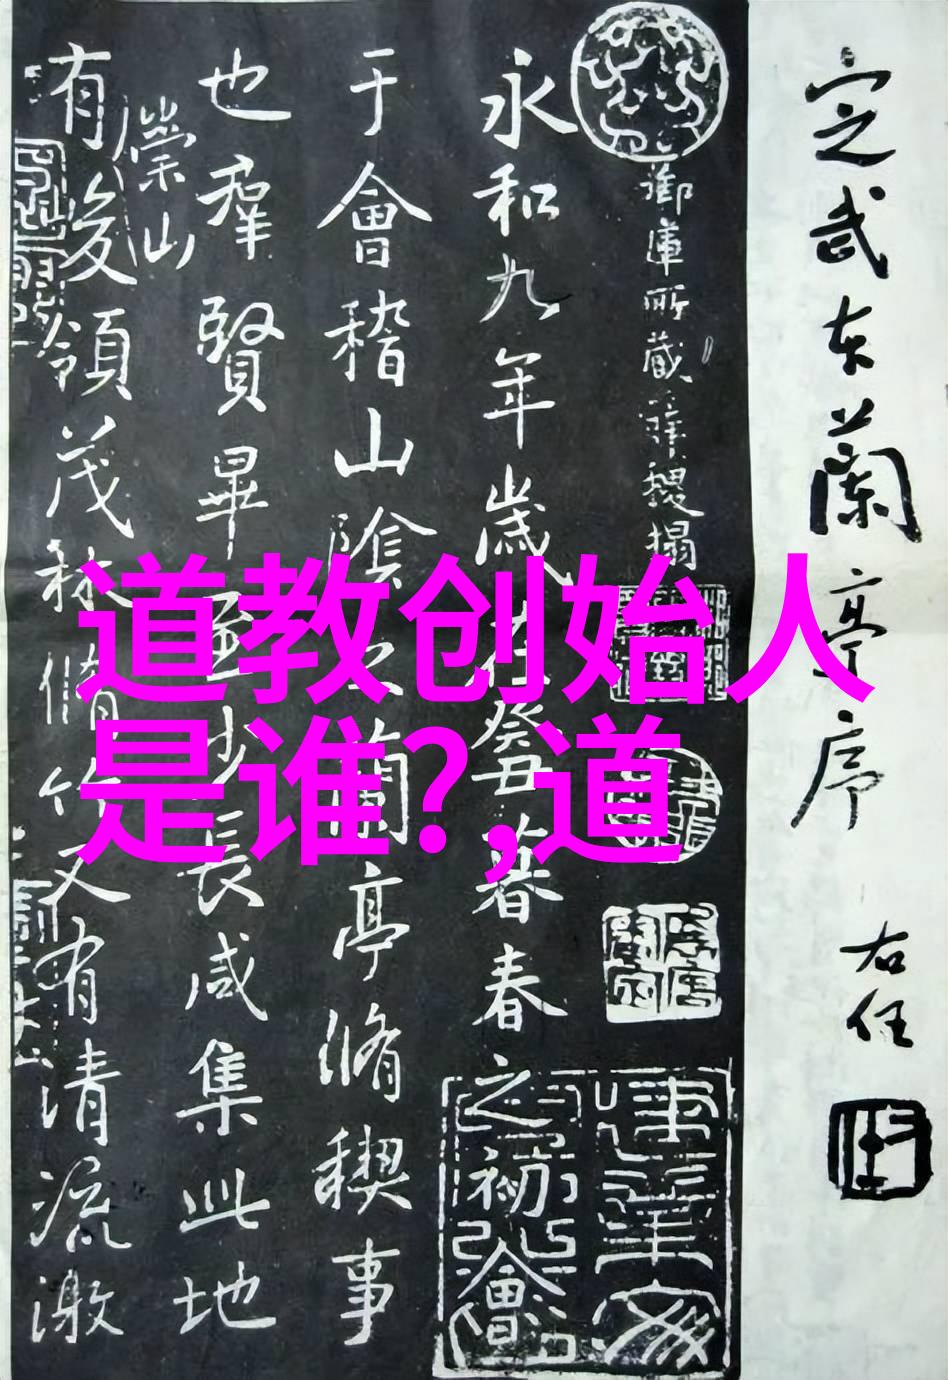 定武本蘭亭序
右任
御庫所藏
永和九年歲在癸丑暮春之初會
于會稽山陰之蘭亭脩稧事
也羣賢畢至少長咸集此地
崇山
有峻領茂林脩竹又有清流激
道教创始人
是谁?,道